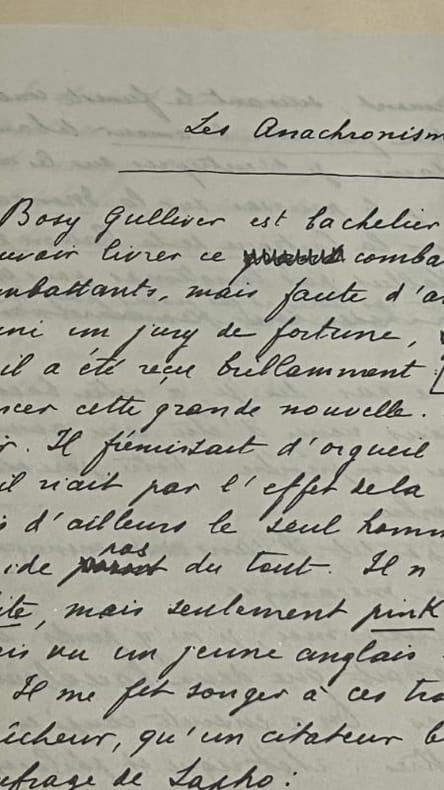 Les Anachronism
Bosy Gulliver est bachelier
uvoir livrer ce combat
mbattants, mais faute d'a
uni un jury de fortune,
il a été reçu brillamment
ncer cette grande nouvelle.
r. Il frémissait d'orgueil
il riait par l'effet de la
s d'ailleurs le seul homm
ide pas du tout. Il n
ite, mais seulement pink
is vu un jeune anglais
Il me fit songer à ces tro
êcheur, qu'un citateur
ufrage de Sapho: